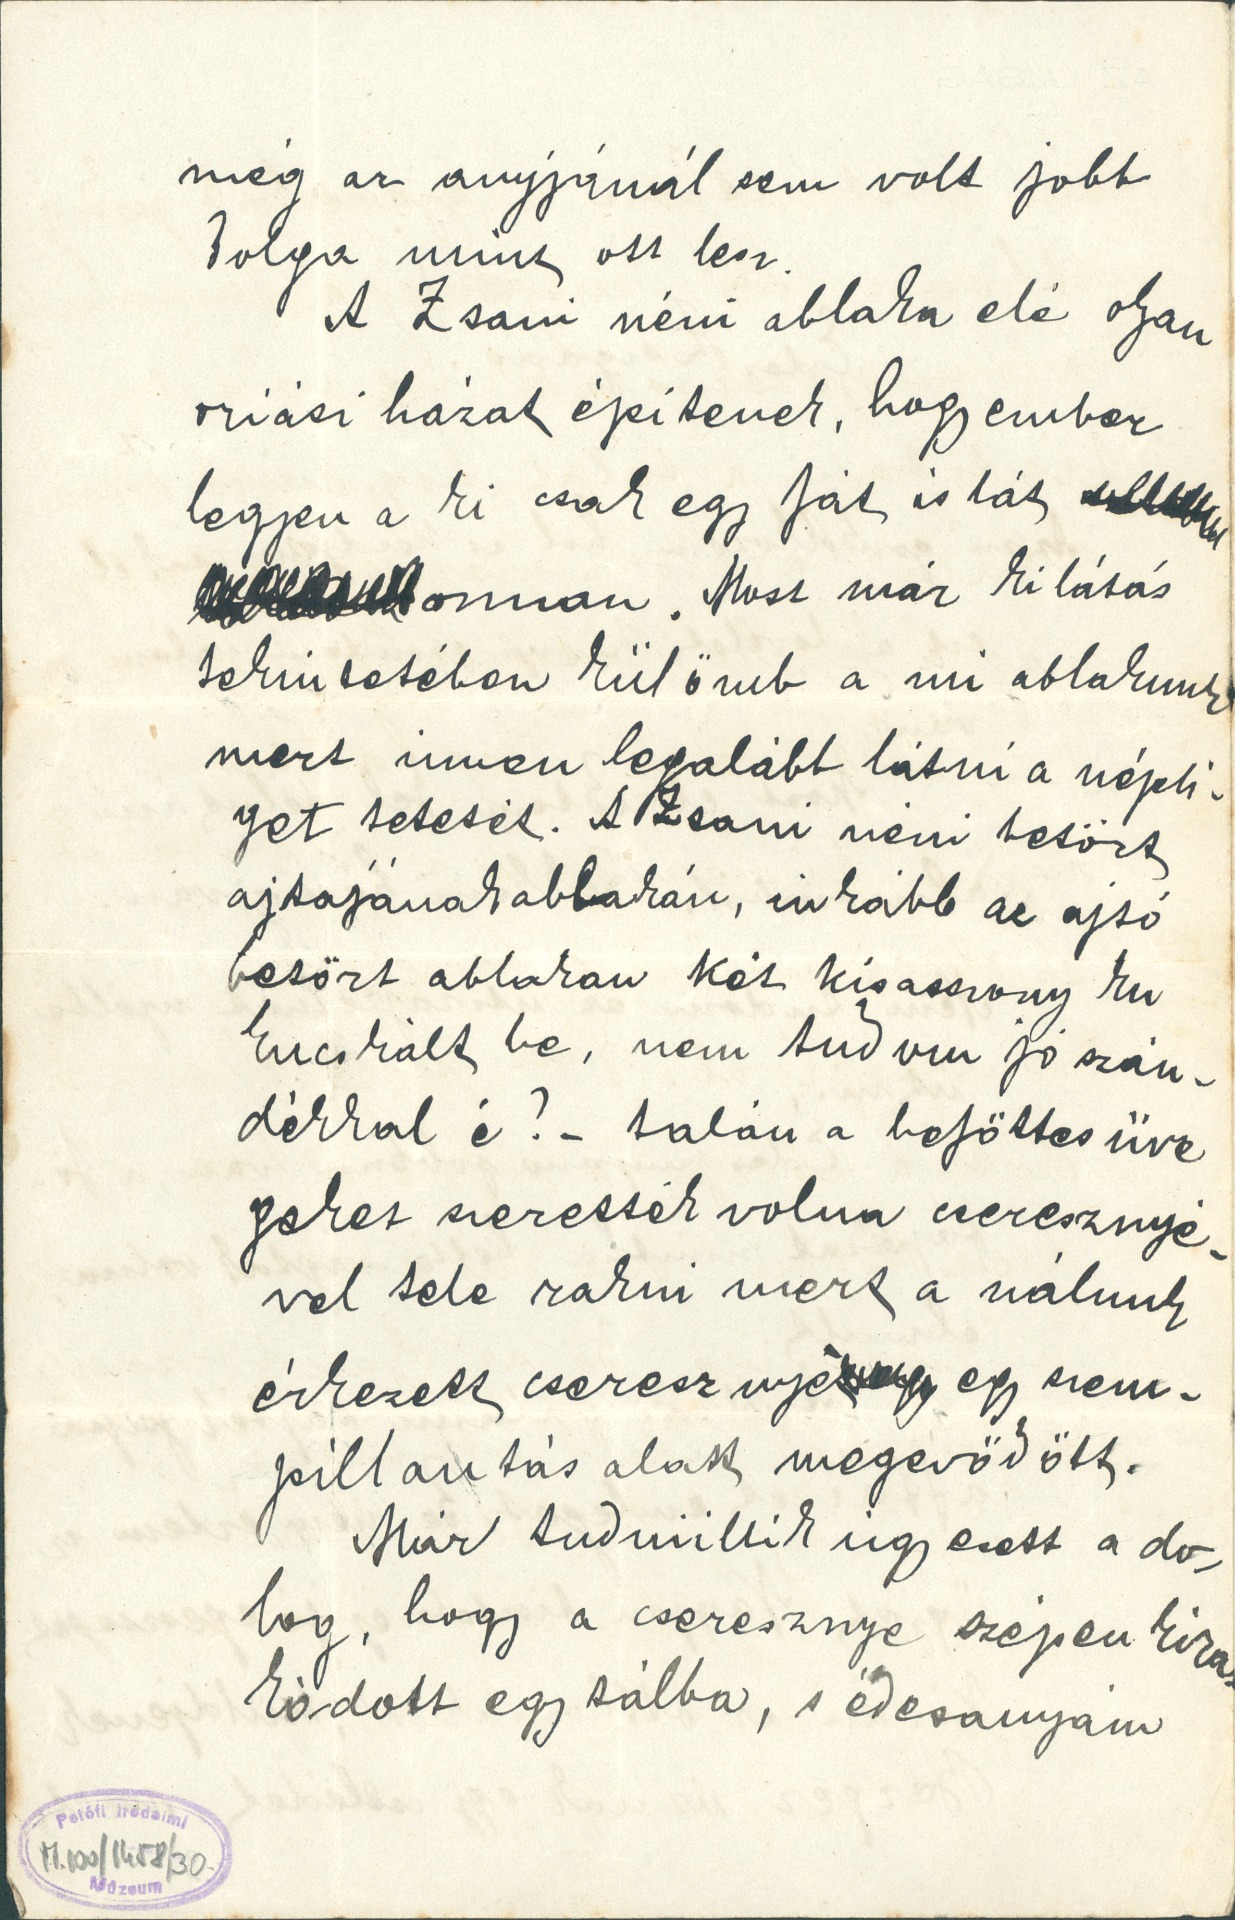 még az anyjánál sem volt jobb
dolga mint ott lesz.
A Zsani néni ablaka elé olyan
oriási házat épitenek, hogy ember
legyen a ki csak egy fát is lát
onnan. Most már kilátás
tekintetében külömb a mi ablakunk
mert innen legalább látni a népli-
get tetesét. A Zsani néni betört
ajtajának ablakán, inkább az ajtó
betört ablakan két kisasszony ku
kucskált be, nem tudom jó szán-
dékkal é? - talán a befőttes üve
geket szerették volna cseresznyé-
vel tele rakni mert a nálunk
érkezett cseresznye egy szem-
pillantás alatt megevődött.
Már tudniillik úgy esett a do-
log, hogy a cseresznye szépen kira
kódott egy tálba, s édesanyám
Petőfi Irodalmi
M.100/1458/30
Múzeum